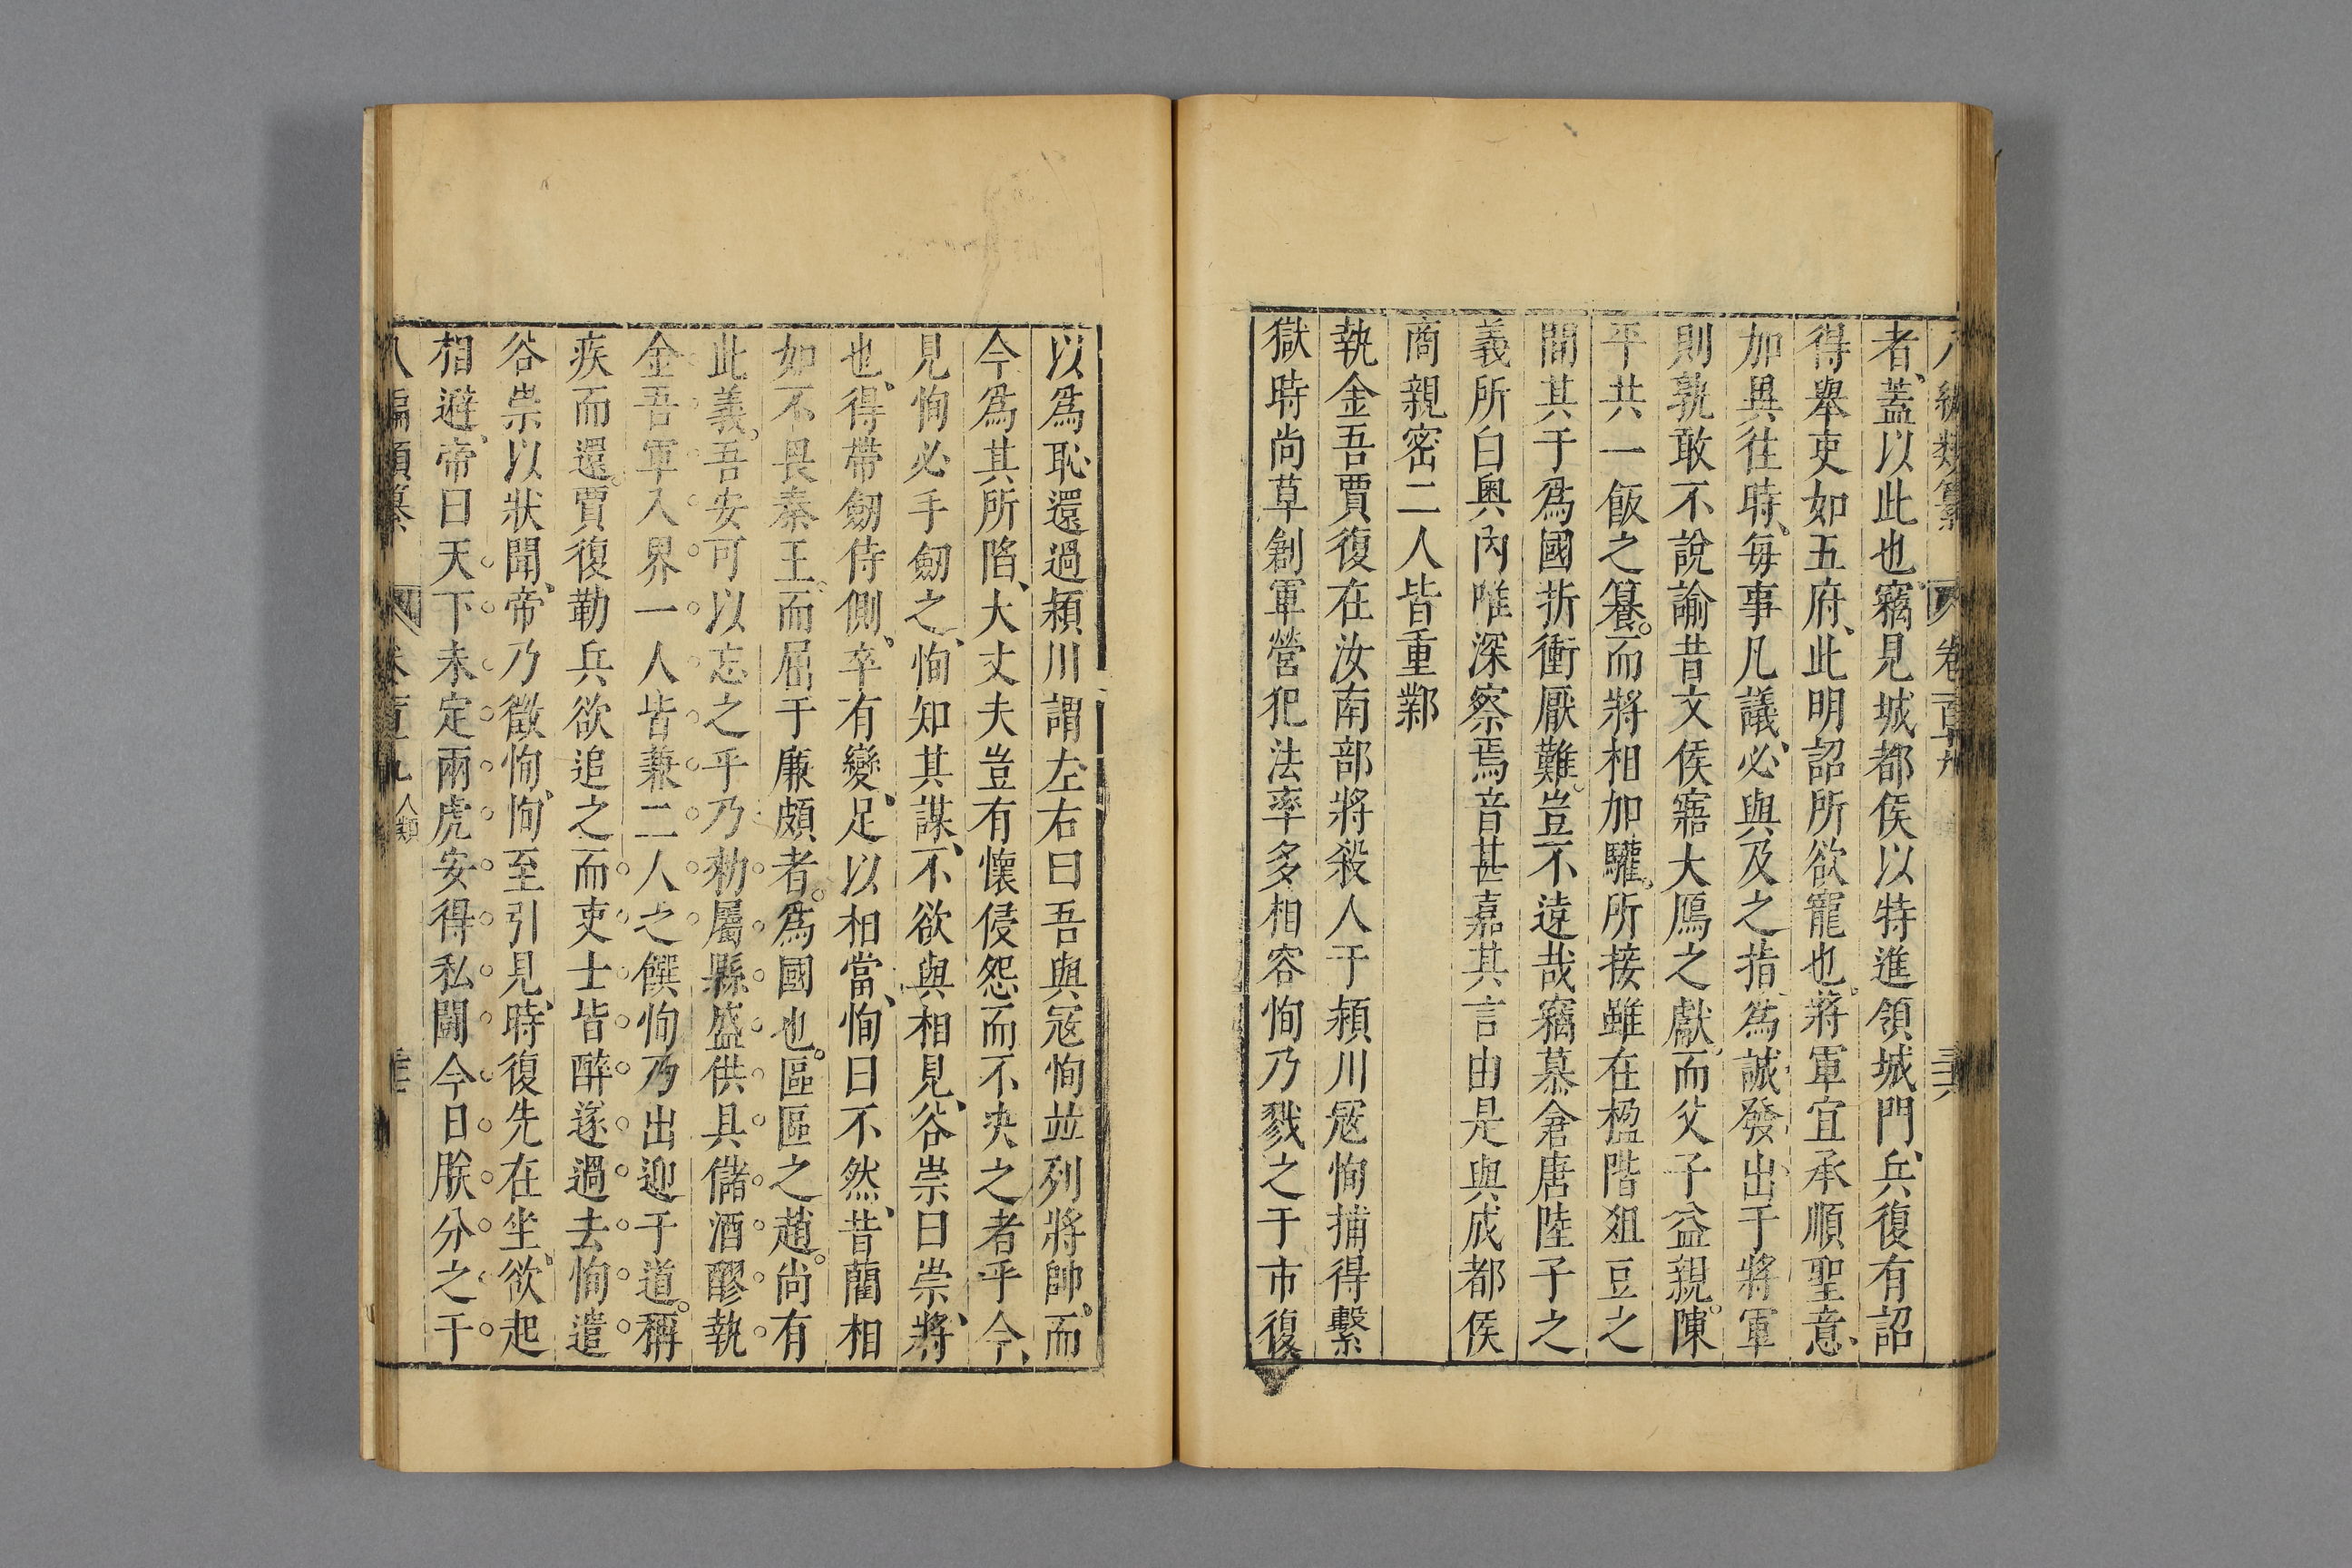 者、蓋以此也竊見城都侯以特進領城門、兵復有詔
得舉吏如五府、此明詔所欲寵也。將軍宜承順聖意、
加異往時、每事凡議、必與及之、指爲誠發出于將軍
則孰敢不說諭昔文侯寤大鴈之獻、而父子益親。陳
平共一飯之籑。而將相加驩。所接雖在楹階俎豆之
間其于爲國折衝厭難。豈不遠哉竊慕倉唐陸子之
義所白奥內唯深察焉音甚嘉其言由是與成都侯
商親密二人皆重鄴
執金吾賈復在汝南部將殺人于潁川寇恂捕得繫
獄時尚草創軍營犯法率多相容恂乃戮之于市復
以爲恥還過潁川謂左右曰吾與寇恂並列將帥。而
今爲其所陷、大丈夫豈有懷侵怨而不决之者乎今、
見恂必手劒之、恂知其謀、不欲與相見、谷崇曰崇、將
也、得帶劒侍側、卒有變、足以相當、恂曰不然、昔藺相
如不畏秦王。而屈于廉頗者。爲國也。區區之趙。尚有
此義。吾安可以忘之乎乃勑屬縣盛供具儲酒醪執
金吾軍入界一人皆兼二人之饌恂乃出迎于道。稱
疾而還。賈復勒兵欲追之而吏士皆醉遂過去恂遣
谷崇以狀聞、帝乃徵恂、恂至引見、時復先在坐、欲起
相避、帝曰天下未定兩虎安得私鬬今日朕分之于